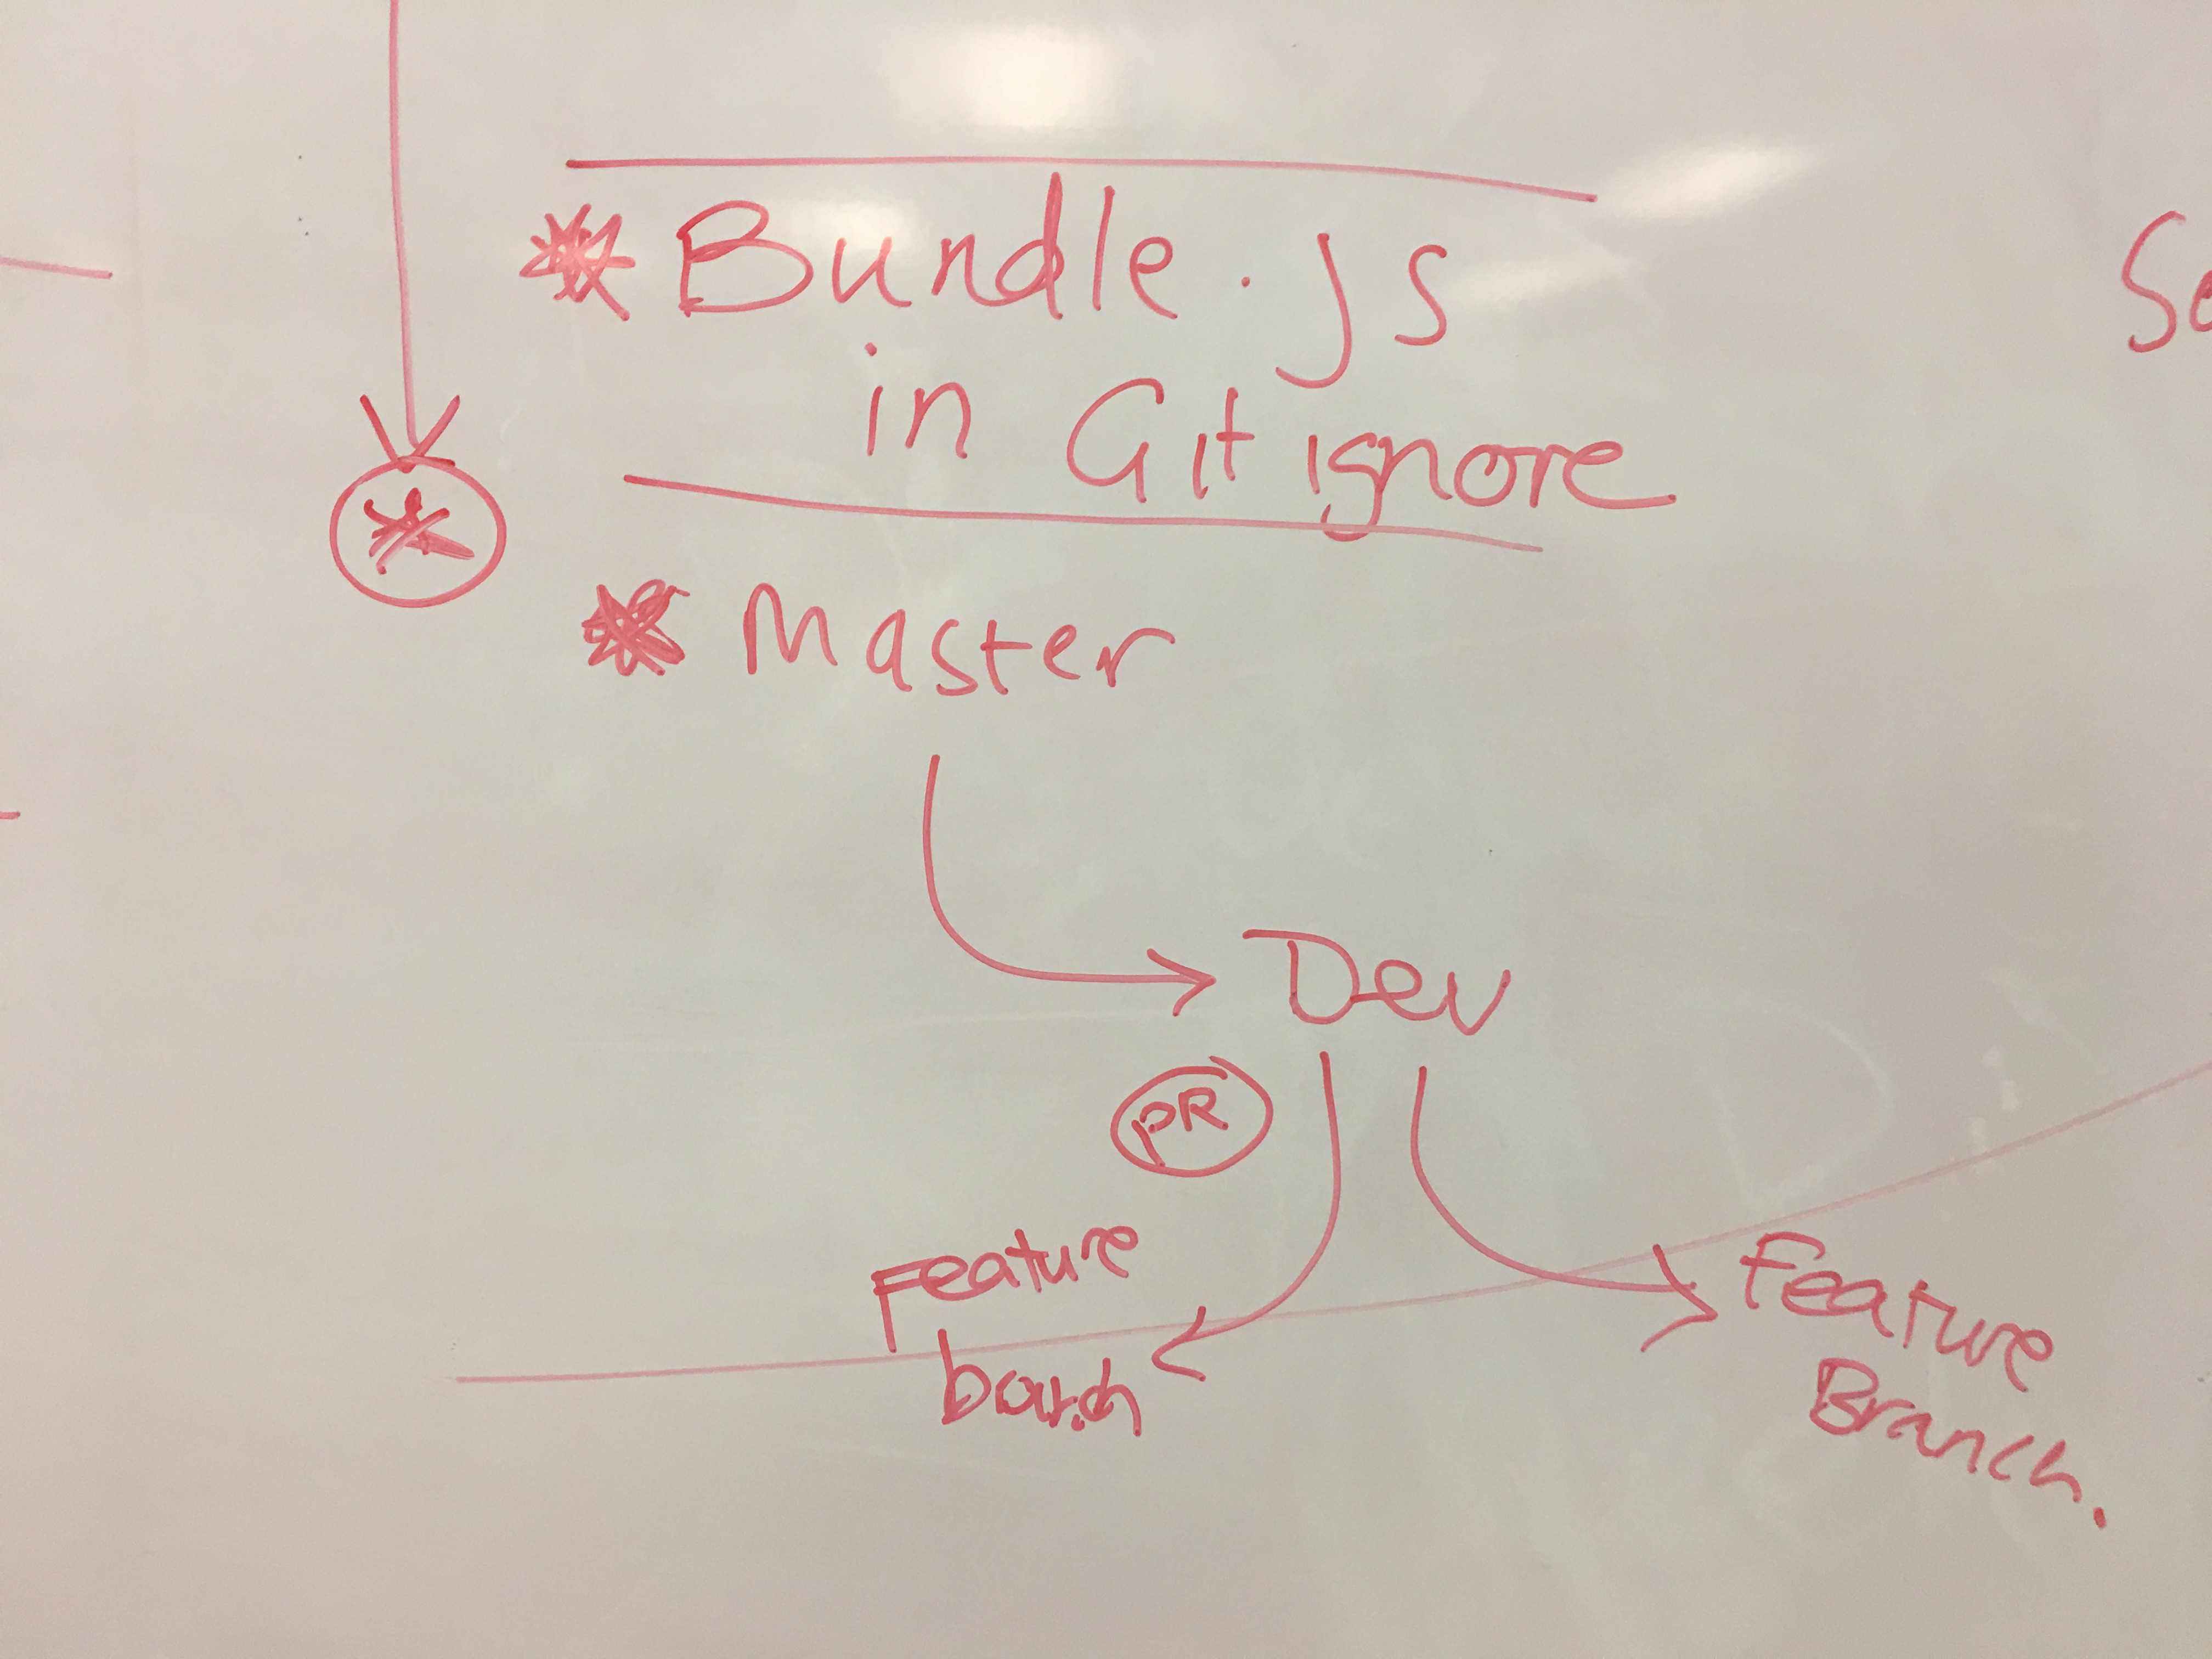 * Bundle.js
in Gitignore
Se
* Master
Dev
PR
Feature
Feature
Branch.